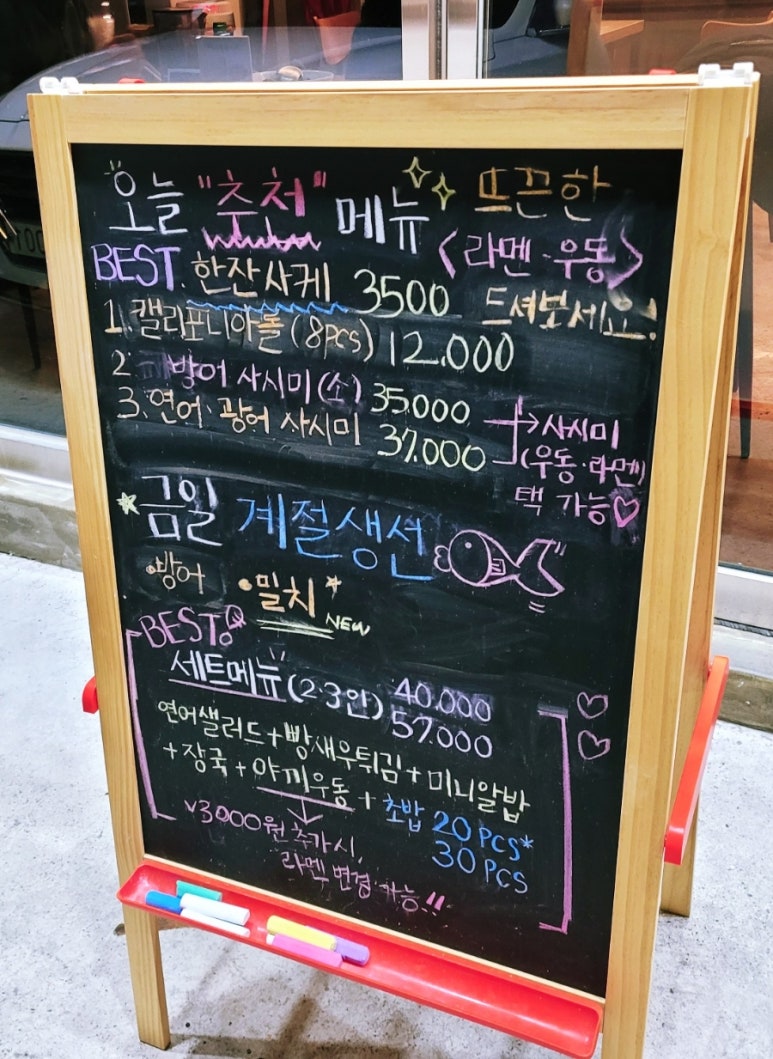 오늘 "추천" 메뉴 뜨끈한
<라멘·우동>
BEST. 한잔사케 3500 드셔보세요!
1. 캘리포니아롤 (8pcs) 12.000
2 방어 사시미 (소) 35.000
3. 연어·광어 사시미 37.000
→사시미
(우동·라멘)
택 가능♡
금일 계절생선
•방어 •밀치 NEW
BEST!
세트메뉴 (2·3인) 40.000
57.000
연어샐러드+빵새우튀김+미니알밥
+장국+야끼우동+초밥 20PCS*
30PCS
v3000원 추가시,
라멘 변경 가능!!